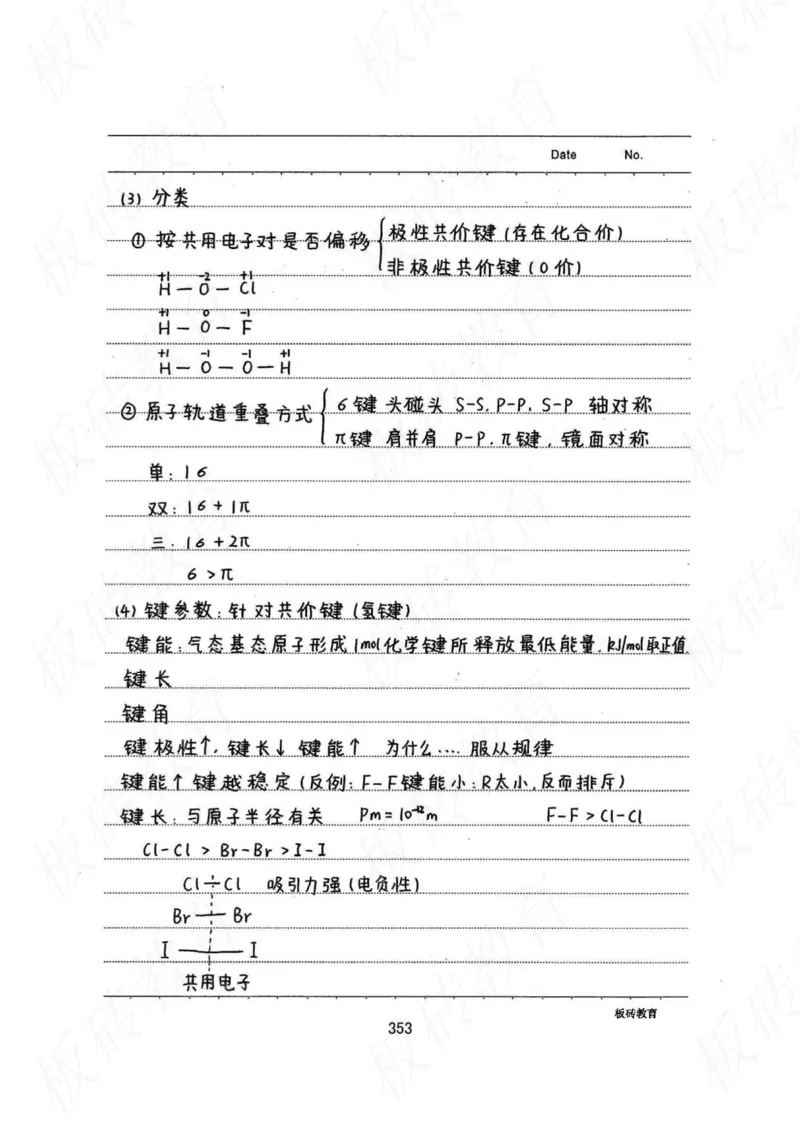 Date No.
(3) 分类
① 按共用电子对是否偏移 { 极性共价键 (存在化合价)
非极性共价键 (0价)
+1 -2 +1
H - O - Cl
+1 0 -1
H - O - F
+1 -1 -1 +1
H - O - O - H
② 原子轨道重叠方式 { 6键 头碰头 S-S, P-P, S-P 轴对称
π键 肩并肩 P-P, π键, 镜面对称
单: 16
双: 16 + 1π
三: 16 + 2π
6 > π
(4) 键参数: 针对共价键 (氢键)
键能: 气态基态原子形成1mol化学键所释放最低能量. kJ/mol取正值.
键长
键角
键极性↑, 键长↓ 键能↑ 为什么.... 服从规律
键能↑ 键越稳定 (反例: F-F键能小: R太小, 反而排斥)
键长: 与原子半径有关 Pm = 10⁻¹²m F-F > Cl-Cl
Cl-Cl > Br-Br > I-I
Cl-Cl 吸引力强 (电负性)
Br-Br
I-I
共用电子
板砖教育
353